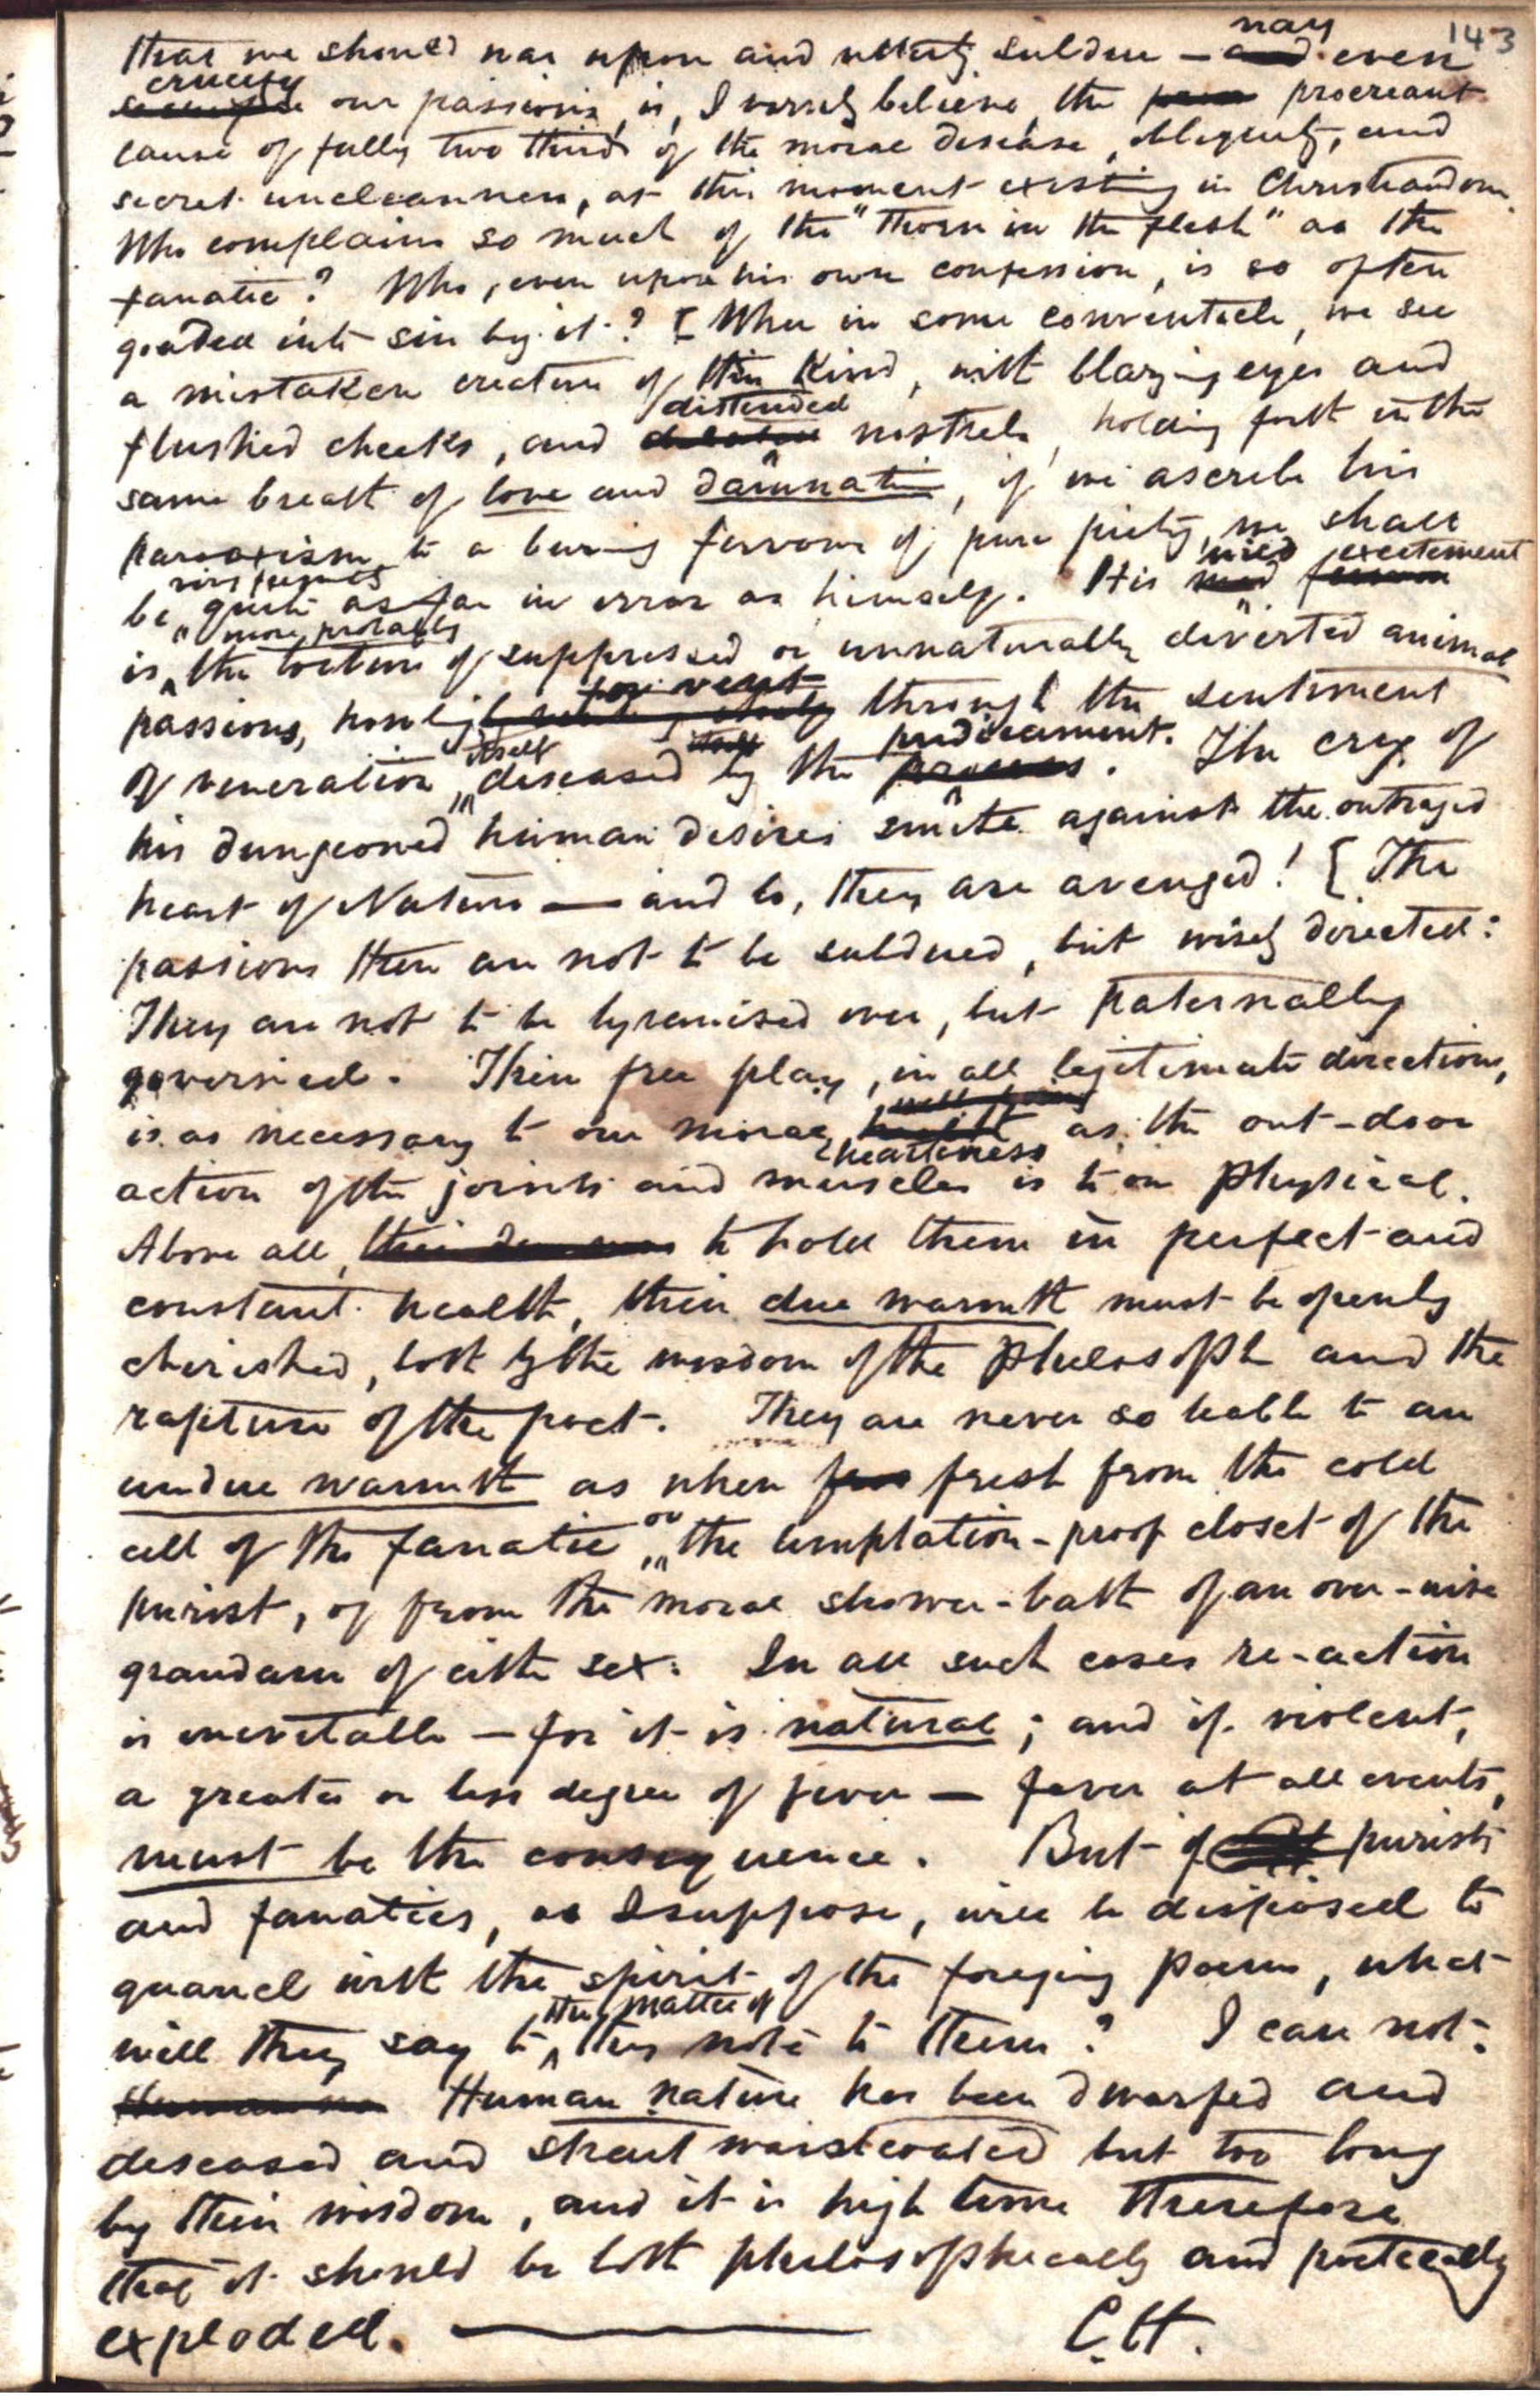 143
that we should war upon and utterly subdue – and nay even
sacrifice crucify our passions, is, I verily believe, the procreant
cause of fully two thirds of the moral disease, obliquity, and
secret uncleanness, at this moment existing in Christiandom.
Who complains so much of the "Thorn in the flesh" as the
fanatic? Who, even upon his own confession, is so often
goaded into sin by it? [ When in some conventicle, we see
a mistaken creature of this kind, with blazing eyes and
flushed cheeks, and dilated distended nostrils, holding forth in the
same breath of love and damnation, if we ascribe his
paroxism to a burning fervour of pure piety, we shall
be quite as far in error as himself. His mad wild excitement
is more probably the torture of suppressed or unnaturally diverted animal
passions, howling for vent through the sentiment
of veneration itself diseased by the process predicament. The cry of
his dungeoned human desires smite against the outraged
heart of Nature — and lo, they are avenged! [ The
passions then are not to be subdued, but wisely directed:
They are not to be tyranised over, but paternally
governed. Their free play, in all legitimate directions,
is as necessary to our moral health well being heartiness as the out-door
action of the joints and muscles is to our physical.
Above all, to hold them in perfect and
constant health, their due warmth must be openly
cherished, both by the wisdom of the philosoph and the
rapture of the poet. They are never so liable to an
undue warmth as when fresh from the cold
cell of the fanatic or the temptation-proof closet of the
purist, or from the moral shower-bath of an over-wise
grandam of either sex. In all such cases re-action
is inevitable – for it is natural; and if violent,
a greater or less degree of fever — fever at all events,
must be the consequence. But if purists
and fanatics, as I suppose, will be disposed to
quarrel with the spirit of the foregoing poem, what
will they say to the matter of this note to them? I care not:
Human na Human nature has been dwarfed and
diseased and strait waistcoated but too long
by their wisdom, and it is high time therefore
that it should be both philosophically and poetically
exploded. — C.H.